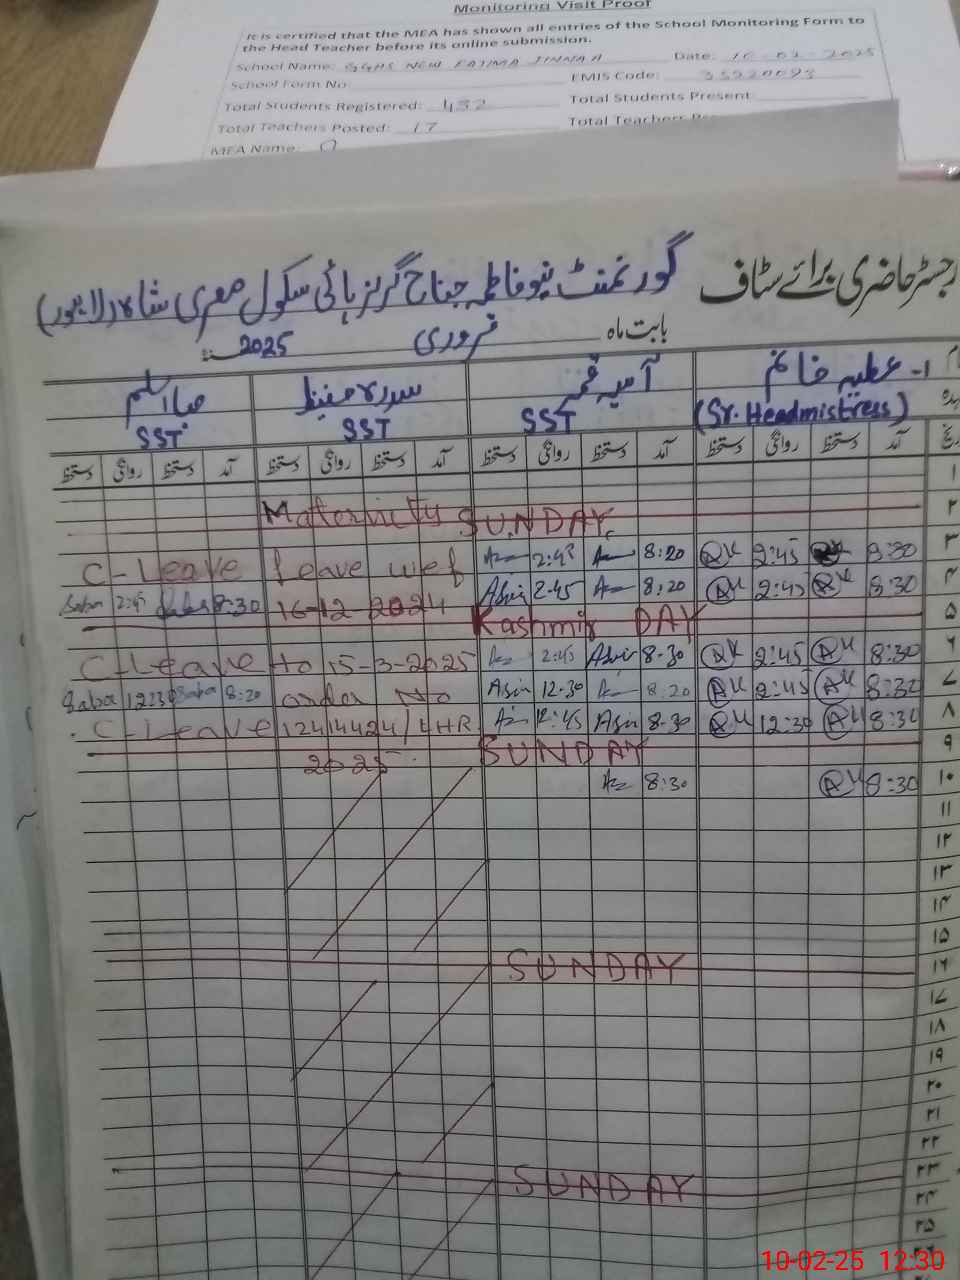 Monitoring Visit Proof
It is certified that the MEA has shown all entries of the School Monitoring Form to
the Head Teacher before its online submission.
School Name: GGHS NEW FATIMA JINNAH Date: 10-02-2025
School Form No EMIS Code: 35220093
Total Students Registered: 432 Total Students Present:
Total Teachers Posted: 17 Total Teachers
MEA Name:
رجسٹر حاضری برائے سٹاف گورنمنٹ نیو فاطمہ جناح گرلز ہائی سکول مصری شاہ (لاہور)
بابت ماہ فروری 2025
۱- عطیہ خانم آسیہ قمر سدرہ حفیظ صبا اسلم
(Sr. Headmistress) SST SST SST
آمد دستخط روانگی دستخط آمد دستخط روانگی دستخط آمد دستخط روانگی دستخط آمد دستخط روانگی دستخط
۱
Maternity SUNDAY ۲
C-Leave leave wef 2:45 8:20 2:45 8:30 ۳
Saba 2:45 Saba 8:30 16-12-2024 Asia 2-45 8:20 2:45 8:30 ۴
Kashmir DAY ۵
C-Leave to 15-3-2025 2:45 Asia 8-30 2:45 8:30 ۶
Saba 12:30 Saba 8:20 order No Asia 12.30 8:20 2:45 8:30 ۷
C-Leave 12414424/LHR 12:45 Asia 8-30 12:30 8:30 ۸
2025 SUNDAY ۹
8:30 8:30 ۱۰
۱۱
۱۲
۱۳
۱۴
۱۵
SUNDAY ۱۶
۱۷
۱۸
۱۹
۲۰
۲۱
۲۲
SUNDAY ۲۳
۲۴
۲۵
10-02-25 12:30